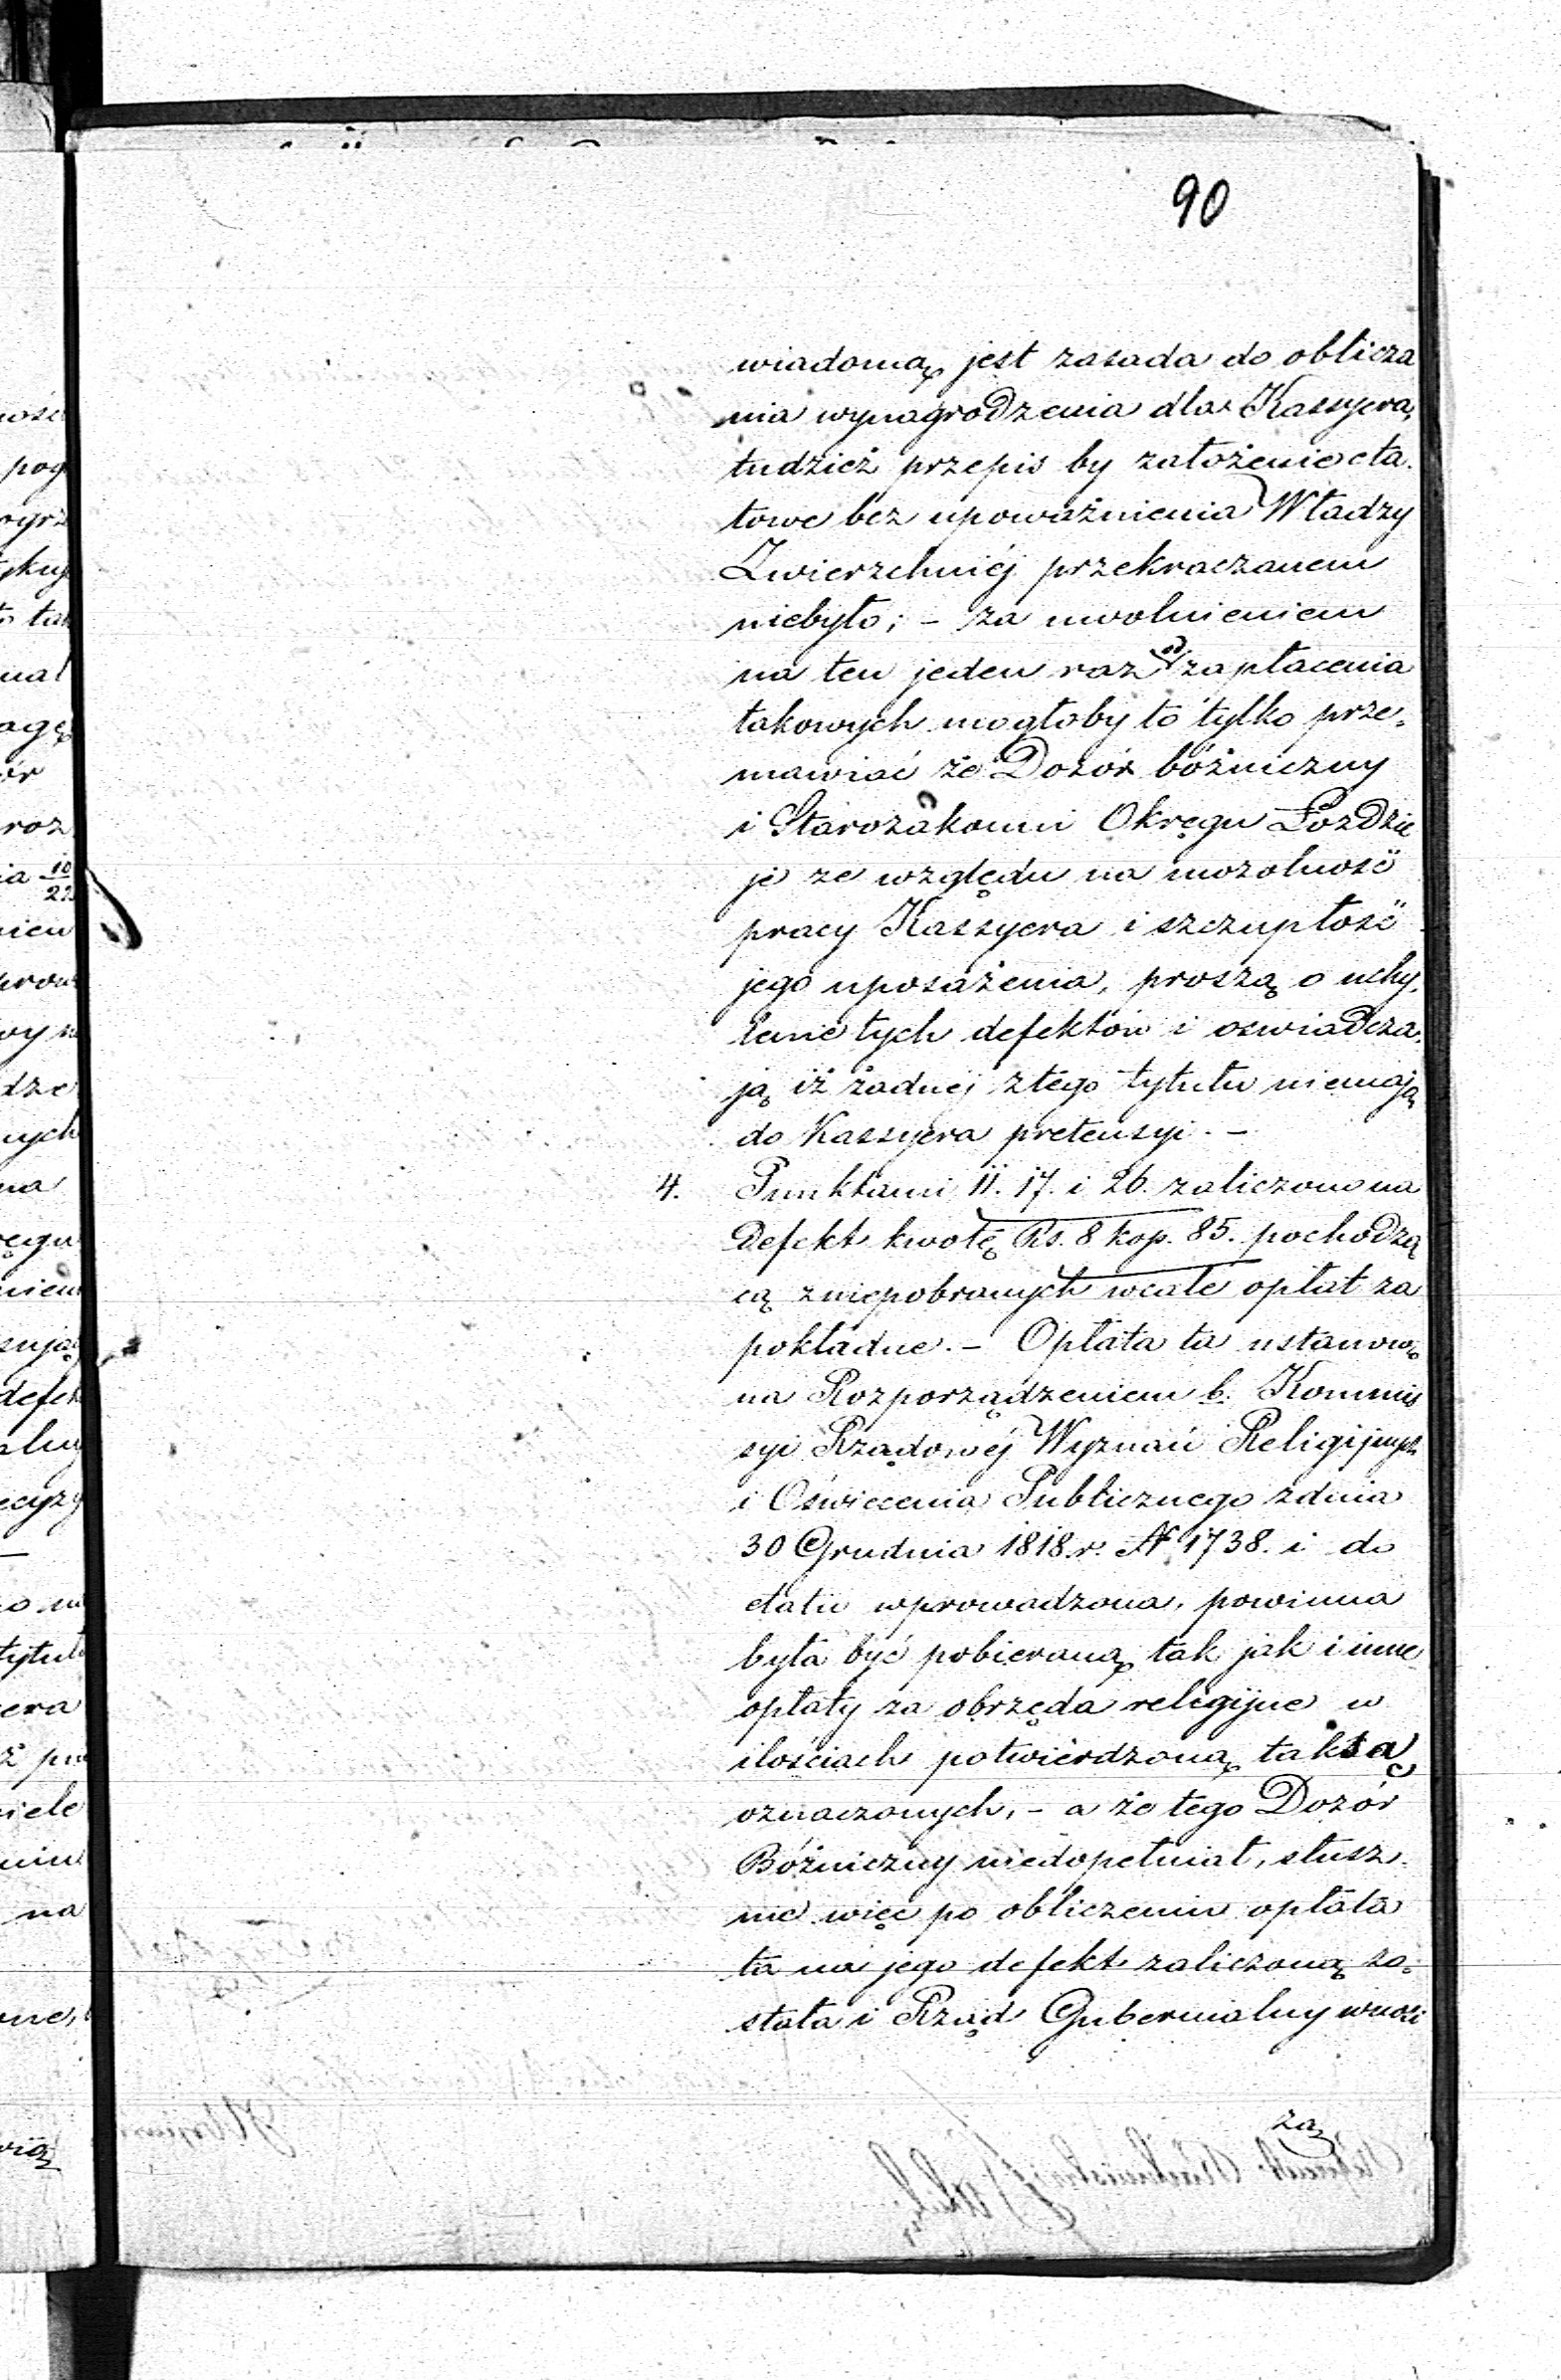 90
wiadomą jest zasada do oblicza
nia wynagrodzenia dla Kassyera,
tudzież przepis by założenie eta-
towe bez upoważnienia Władzy
Zwierzchniéj przekraczanem
niebyło; – za uwolnieniem
na ten jeden raz od zapłacenia
takowych mogłoby to tylko prze-
mawiać że Dozór bóżniczny
i Starozakonni Okręgu Łozdzie
je ze względu na mozolność
pracy Kassyera i szczupłość
jego uposażenia, proszą o uchy-
lenie tych defektów i oswiadcza-
ją iż żadnéj ztego tytułu niemają
do Kassyera pretensyi. –
4. Punktami 11. 17. i 26. zaliczono na
defekt kwotę Rs. 8 kop. 85. pochodzą
cą zniepobranych wcale opłat za
pokładne. – Opłata ta ustanowio
na Rozporządzeniem b. Kommis
syi Rządowéj Wyznań Religijnych
i Oświecenia Publicznego zdnia
30 Grudnia 1818.r. N 1738. i do
etatu wprowadzona, powinna
była być pobieraną tak jak i inne
opłaty za obrzęda religijne w
ilościach potwierdzoną taksą
oznaczonych, – a że tego Dozór
Bóżniczny niedopełniał, słusz-
nie więc po obliczeniu opłata
ta na jego defekt zaliczoną zo-
stała i Rząd Gubernialny wnosi
za